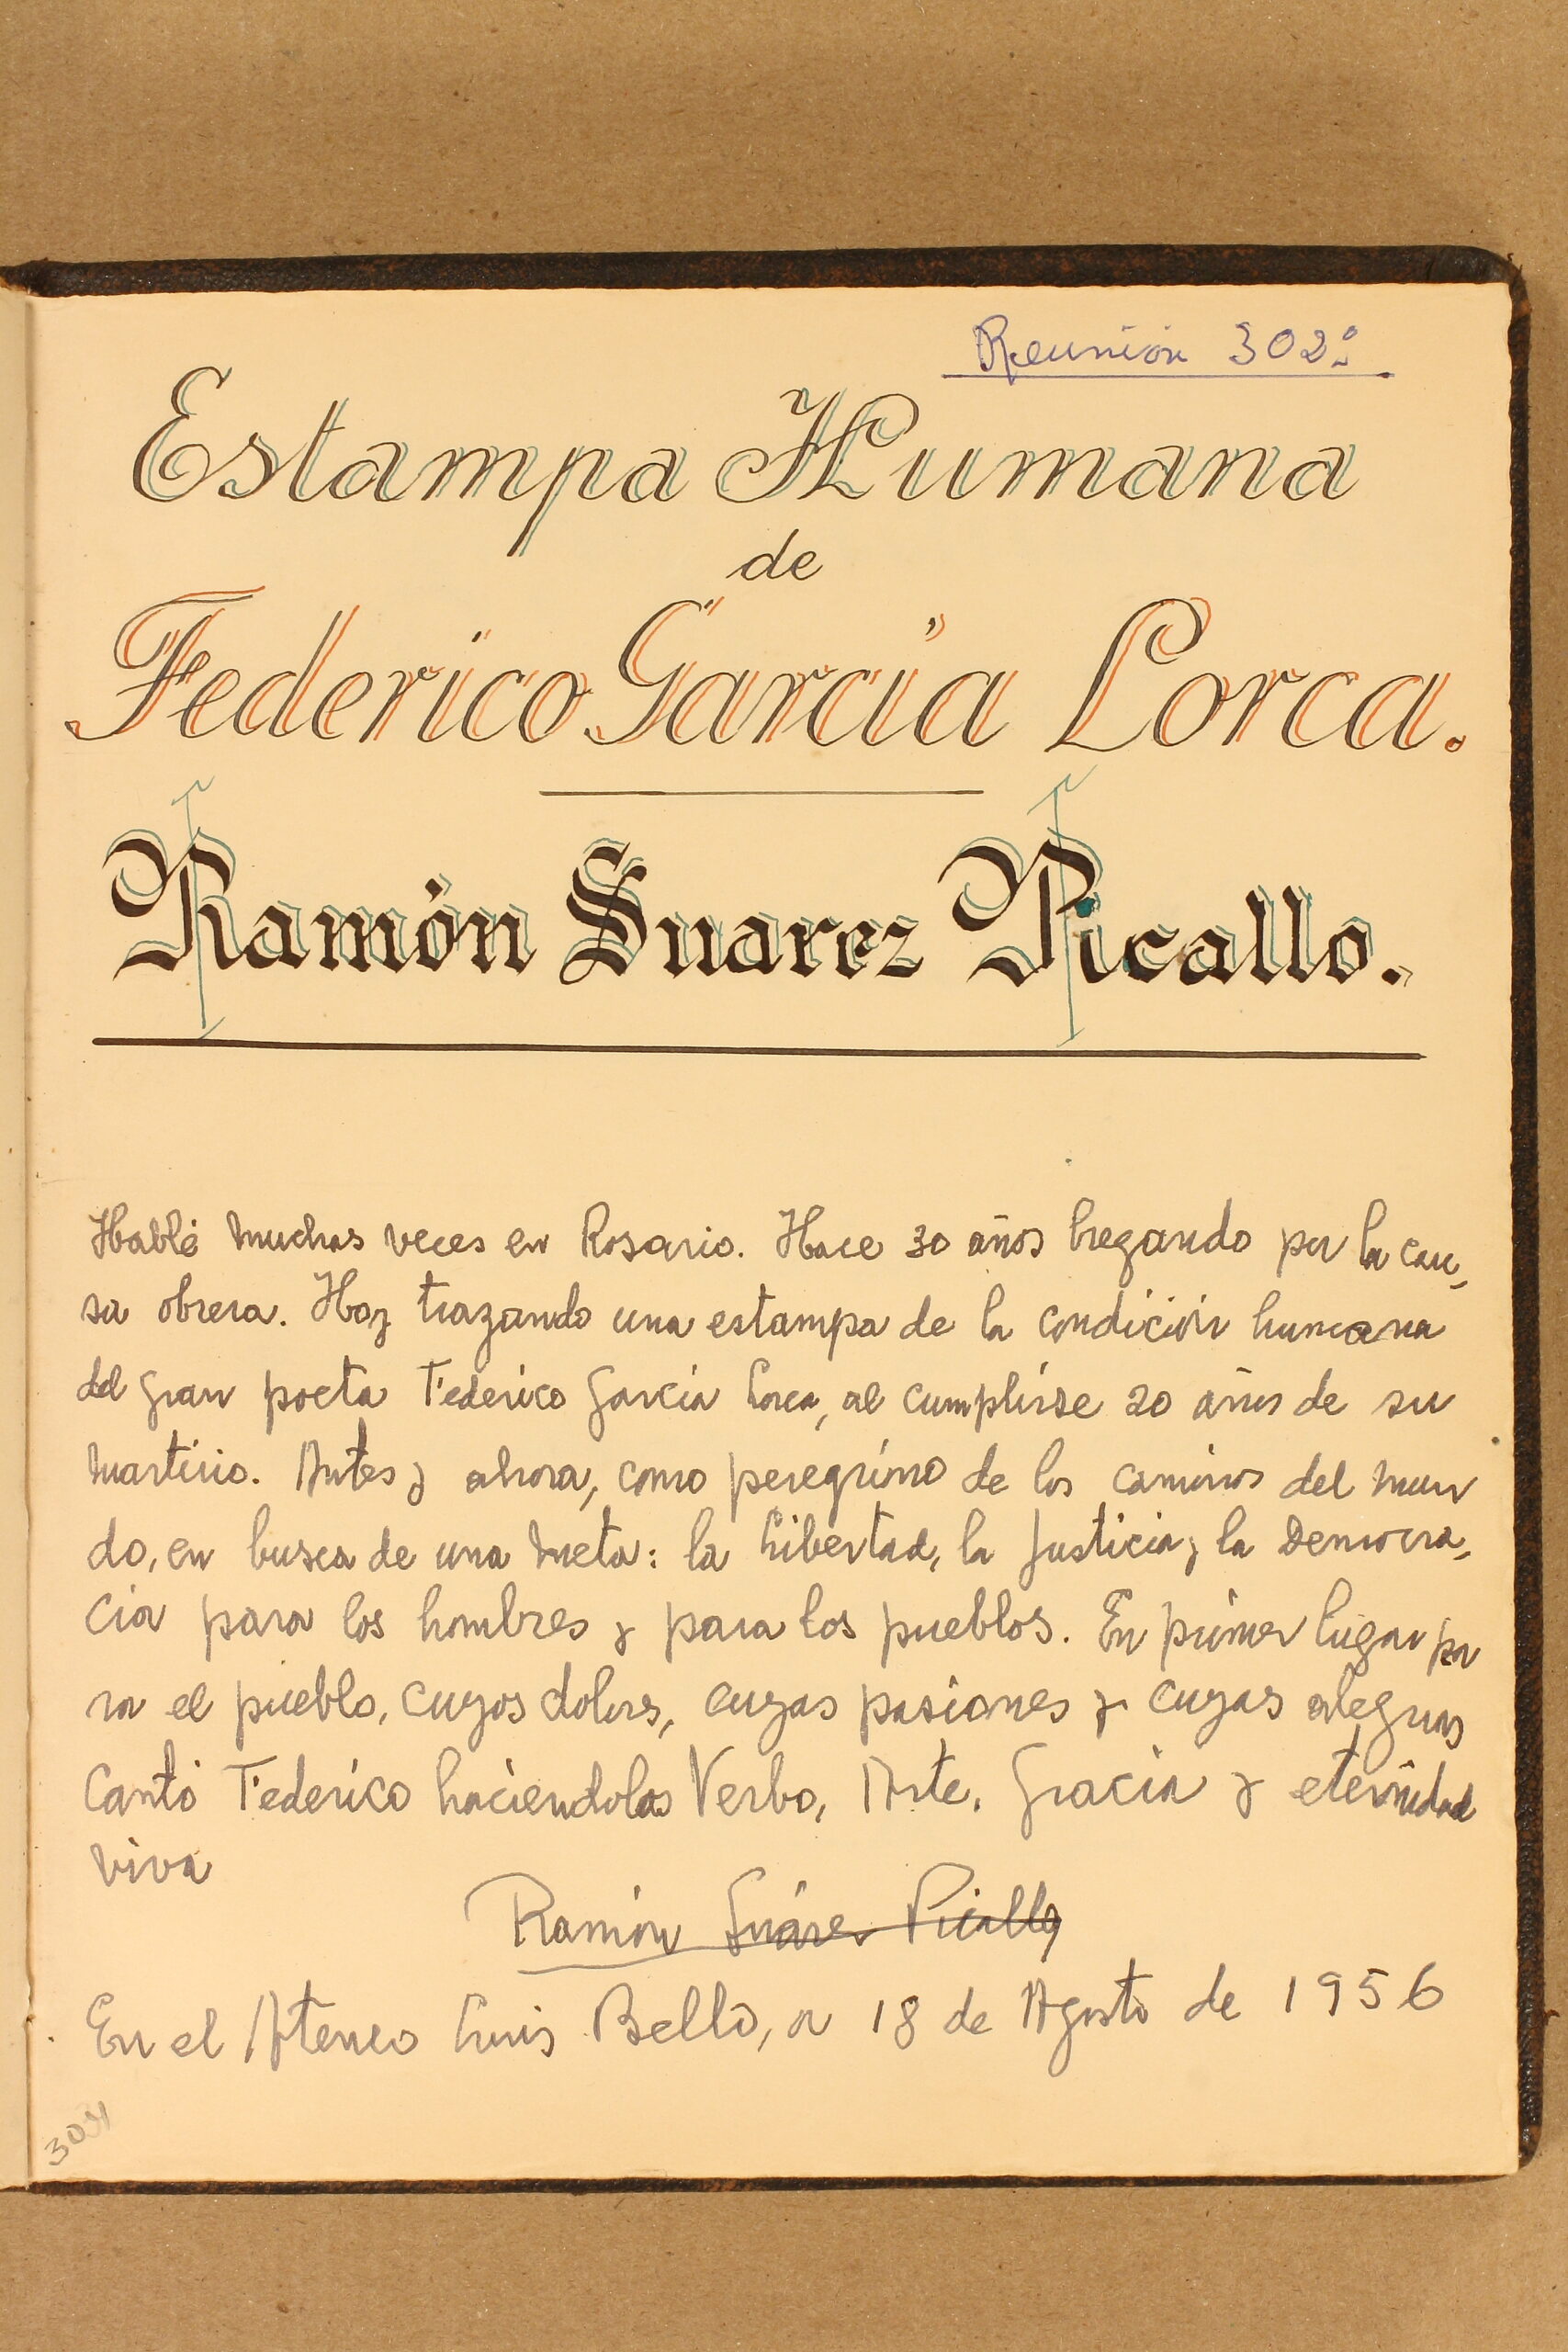 Reunión 302ª
Estampa Humana
de
Federico García Lorca.
Ramón Suarez Picallo.
Hablé muchas veces en Rosario. Hace 30 años bregando por la cau-
sa obrera. Hoy trazando una estampa de la condición humana
del gran poeta Federico García Lorca, al cumplirse 20 años de su
martirio. Antes y ahora, como peregrino de los caminos del mun
do, en busca de una meta: la Libertad, la Justicia y la Democra-
cia para los hombres y para los pueblos. En primer lugar pa
ra el pueblo, cuyos dolores, cuyas pasiones y cuyas alegrias
Cantó Federico haciendolas Verbo, Arte, Gracia y eternidad
viva
Ramón Suárez Picallo
En el Ateneo Luis Bello, a 18 de Agosto de 1956